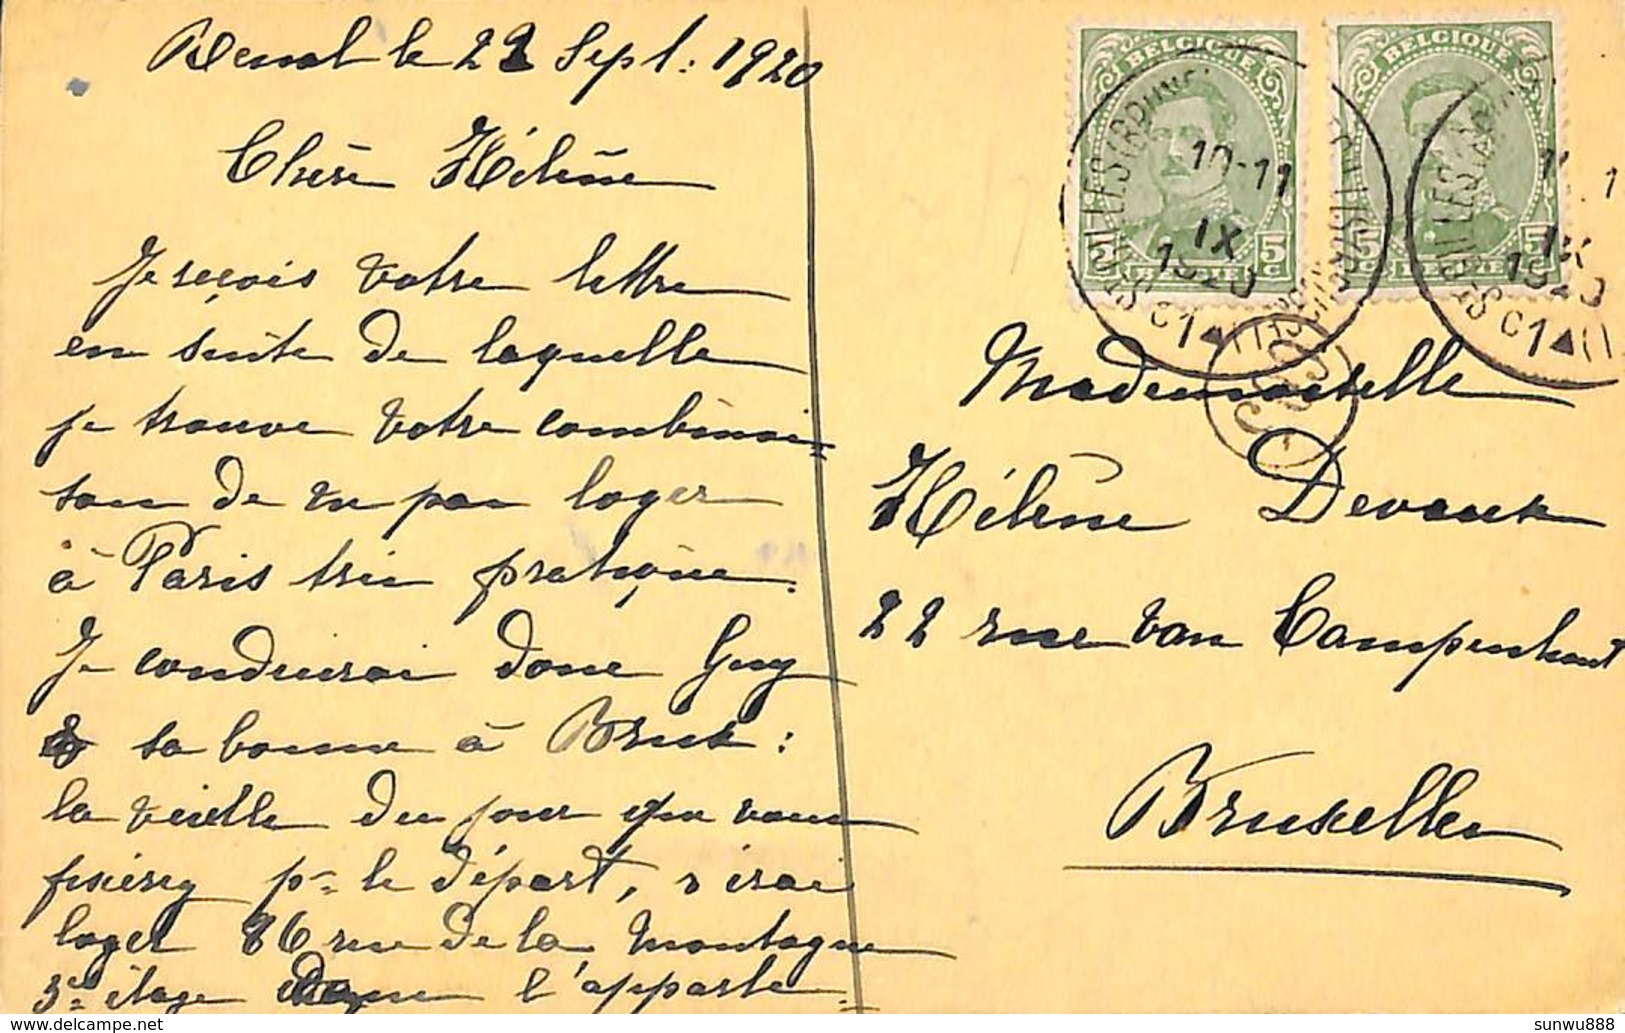 le 22 Sept: 1920
Chère Hélène
Je reçois votre lettre
en suite de laquelle
je trouve votre combinai=
son de ne pas loger
à Paris très pratique.
Je conduirai donc Guy
& sa bonne à Brux:
la veille du jour que vous
fixerez pr le départ, j'irai
loger 86 rue de la Montagne
3e étage l'apparte=
BELGIQUE
5c BELGIË 5c
10-11
IX
1920
C1
BELGIQUE
5c BELGIË 5c
IX
1920
C1
Mademoiselle
Hélène Devaux
22 rue Van Campenhout
Bruxelles
delcampe.net
sunwu888